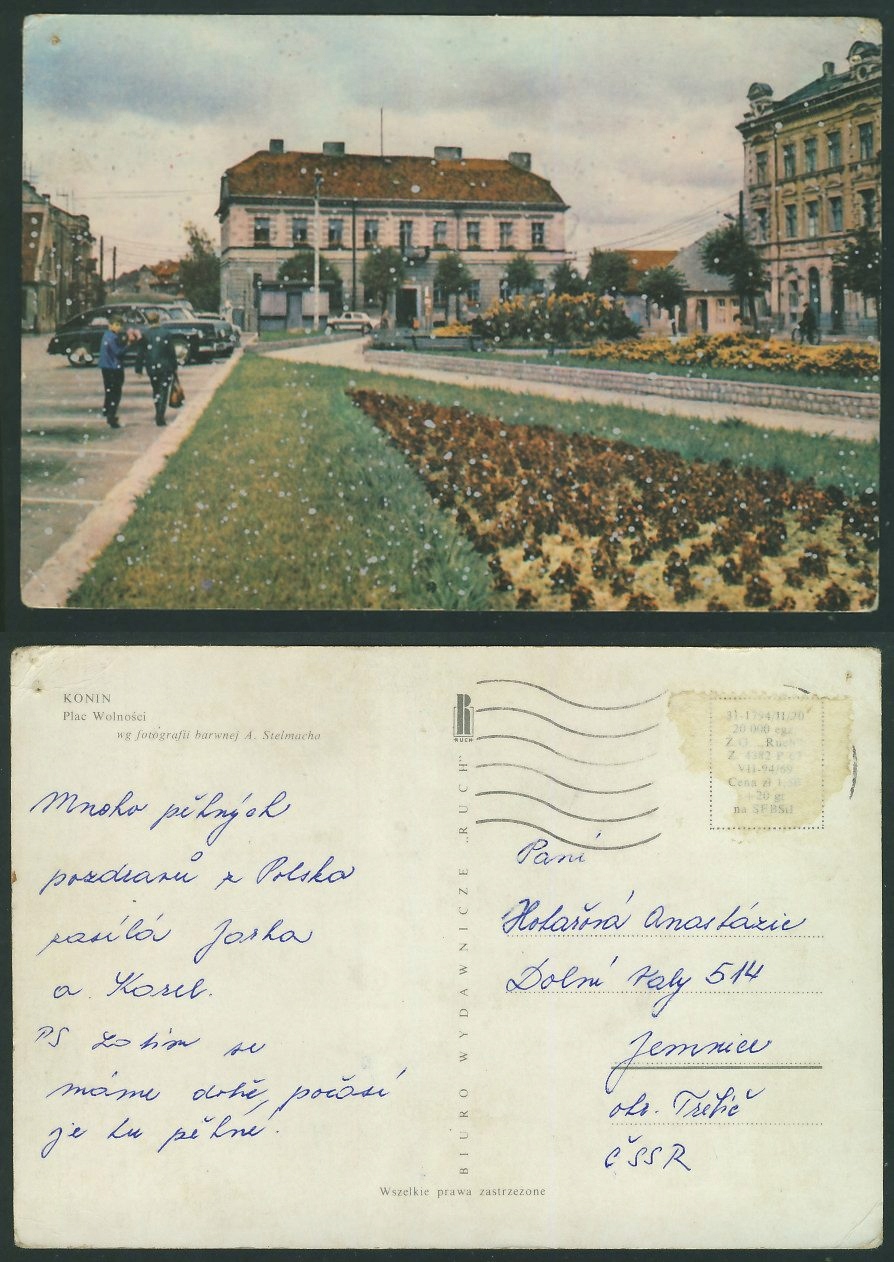 KONIN
Plac Wolności
wg fotografii barwnej A. Stelmacha
Mnoho pěkných
pozdravů z Polska
zasílá Jarka
a Karel.
PS Zatím se
máme dobře, počasí
je tu pěkné.
RUCH
BIURO WYDAWNICZE „RUCH”
Wszelkie prawa zastrzeżone
31-1794/II/20
20 000 egz.
Z.G. „Ruch”
Z. 4382 P-67
VII-94/69
Cena zł 1,50
+ 20 gr
na SFBSiI
Paní
Anastázie
Dolní Valy 514
Jemnice
okr. Třebíč
ČSSR